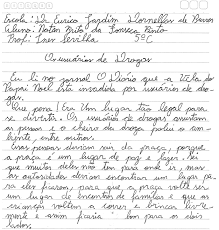 Escola: Dr Eurico Jardim Dornelles de Barros
Aluno: Nailon Brito da Fonseca Pinto
Prof: Ires Sevilha 5ª C
Os usuários de Drogas
Eu li no jornal O Diario que a Vila do
Papai Noel está invadida por usuários de dro-
gas.
Que pena! Era Um lugar tão legal para
se divertir. Os, usuários de drogas assustam
as pessoas e o cheiro da droga polui o am-
biente, entre outros.
Essas pessoas deviam sair da praça, porque
a praça é um lugar de paz e lazer. Sei
que muitos deles não tem para onde ir, mas
as autoridades deviam encontrar um lugar pa-
ra eles ficarem, para que, a praça volte ser
um lugar de encontro de famílias e que as
crianças voltem a correr e brincar livre-
mente e assim ficaria bom para os dois
lados.